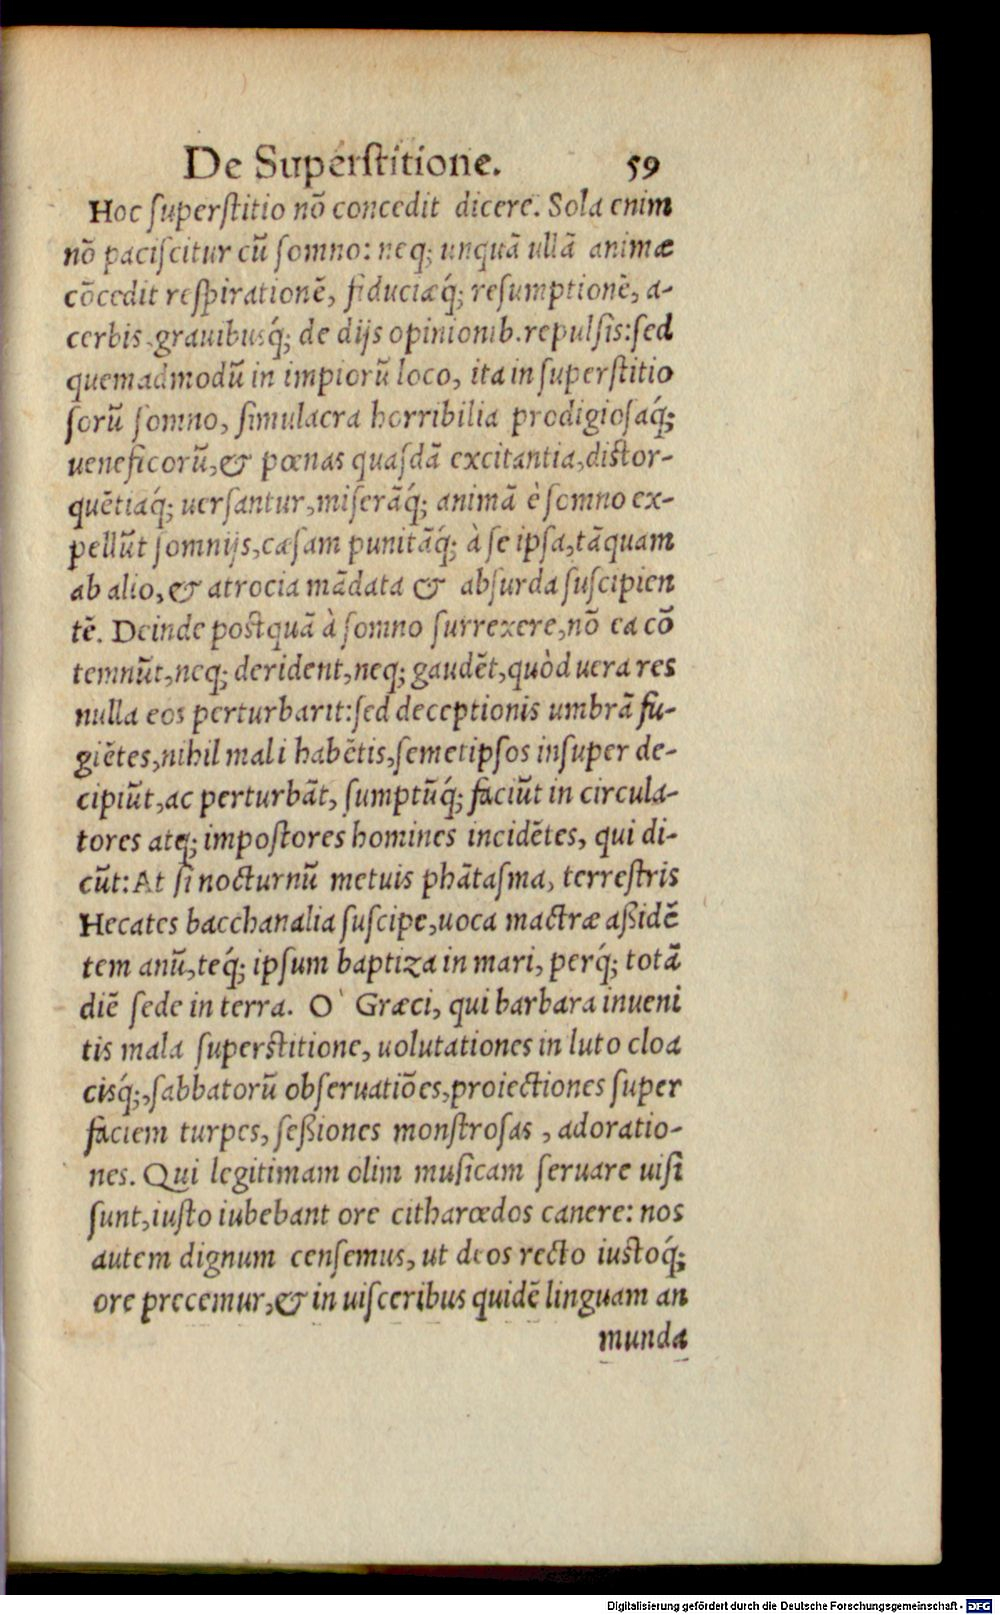 De Superſtitione. 59
Hoc ſuperſtitio nõ concedit dicere. Sola enim
nõ paciſcitur cũ ſomno: neq; unquã ullã animæ
cõcedit reſpirationẽ, fiduciæq́; reſumptionẽ, a-
cerbis grauibusq́; de dijs opinionib. repulſis: ſed
quemadmodũ in impiorũ loco, ita in ſuperſtitio
ſorũ ſomno, ſimulacra horribilia prodigioſaq́;
ueneficorũ, & pœnas quaſdã excitantia, diſtor-
quẽtiaq́; uerſantur, miſerãq́; animã è ſomno ex-
pellũt ſomnijs, cæſam punitãq́; à ſe ipſa, tãquam
ab alio, & atrocia mãdata & abſurda ſuſcipien
tẽ. Deinde poſtquã à ſomno ſurrexere, nõ ea cõ
temnũt, neq; derident, neq; gaudẽt, quòd uera res
nulla eos perturbarit: ſed deceptionis umbrã fu-
giẽtes, nihil mali habẽtis, ſemetipſos inſuper de-
cipiũt, ac perturbãt, ſumptũq́; faciũt in circula-
tores atq; impoſtores homines incidẽtes, qui di-
cũt: At ſi nocturnũ metuis phãtaſma, terreſtris
Hecates bacchanalia ſuſcipe, uoca mactræ aßidẽ
tem anũ, teq́; ipſum baptiza in mari, perq́; totã
diẽ ſede in terra. O` Græci, qui barbara inueni
tis mala ſuperſtitione, uolutationes in luto cloa
cisq́;, ſabbatorũ obſeruatiões, proiectiones ſuper
faciem turpes, ſeßiones monſtroſas, adoratio-
nes. Qui legitimam olim muſicam ſeruare uiſi
ſunt, iuſto iubebant ore citharœdos canere: nos
autem dignum cenſemus, ut deos recto iuſtoq́;
ore precemur, & in uiſceribus quidẽ linguam an
munda
Digitalisierung gefördert durch die Deutsche Forschungsgemeinschaft - DFG